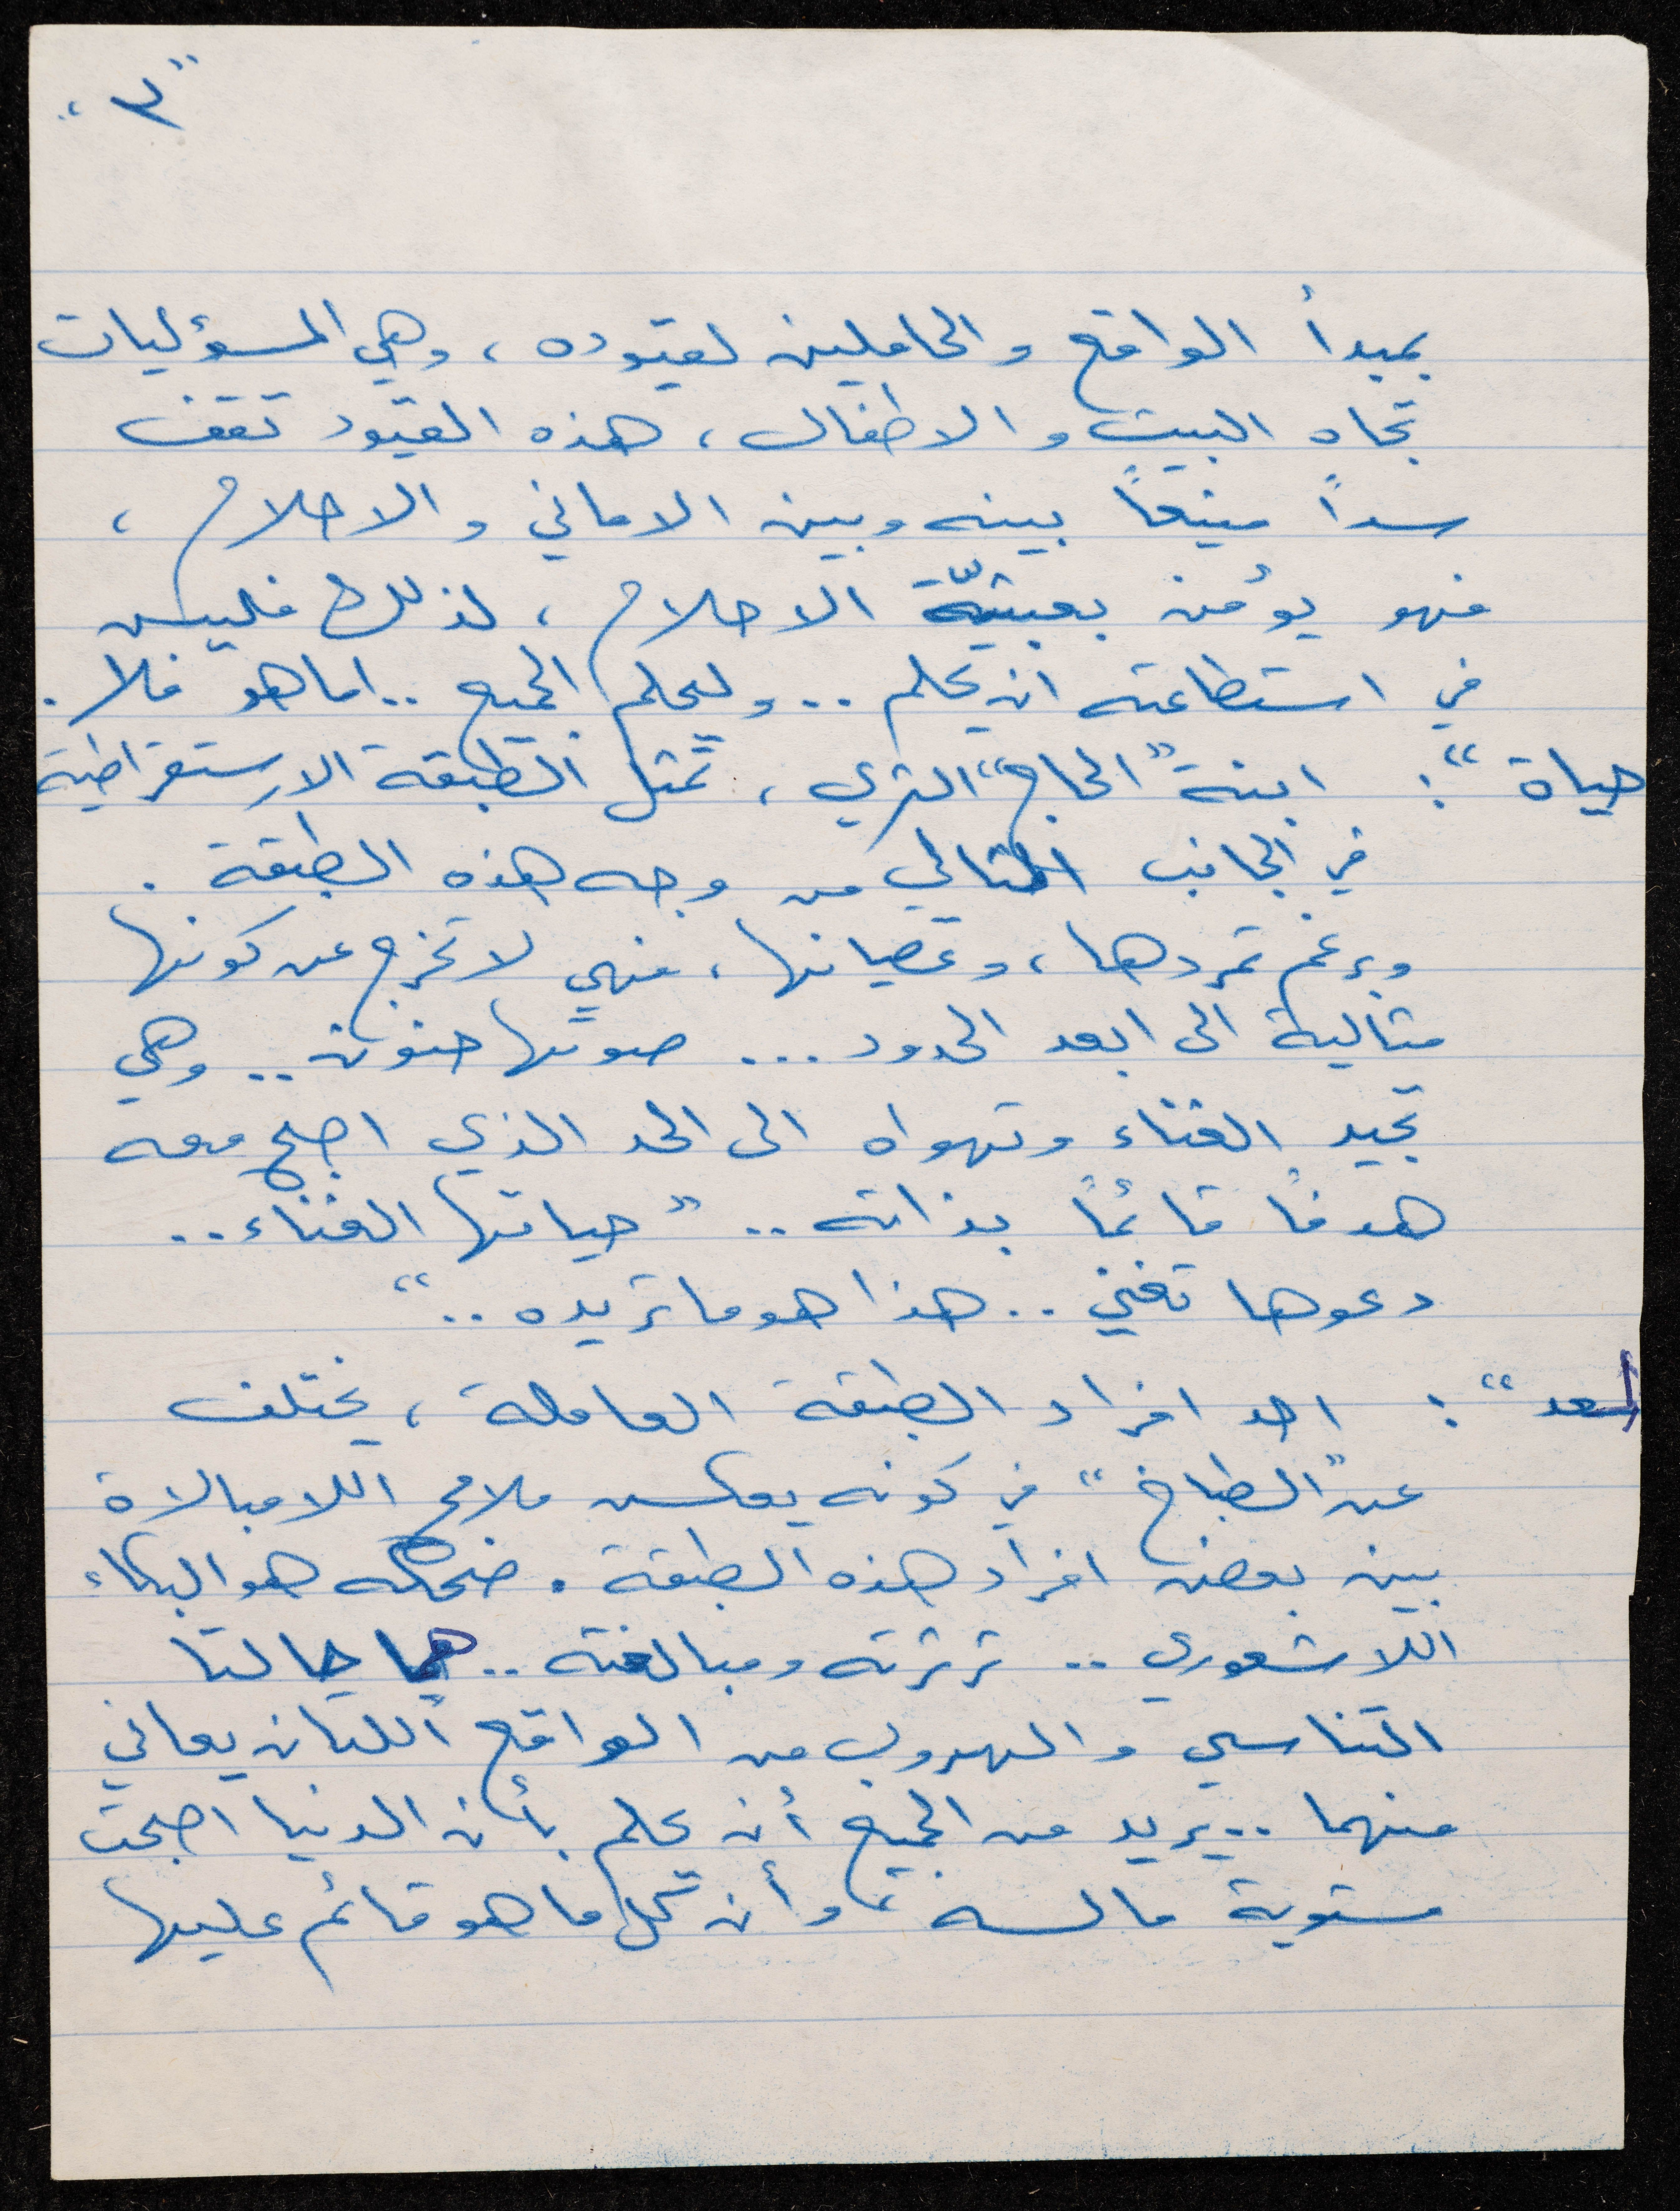 "٣"
بمبدأ الواقع والحاملين لقيوده، وهي المسؤليات
تجاه البيت والاطفال، هذه القيود تقف
سداً منيعاً بينه وبين الاماني والاحلام،
فهو يؤمن بعبثيّة الاحلام، لذلك فليس
في استطاعته ان يحلم .. وليحلم الجميع .. اما هو فلا.
حياة": ابنة "الحاج" الثري، تمثل الطبقة الارستقراطية
في الجانب المثالي من وجه هذه الطبقة.
وبرغم تمردها، وعصيانها، فهي لا تخرج عن كونها
مثالية الى ابعد الحدود ... صوتها حنون .. وهي
تجيد الغناء وتهواه الى الحد الذي اصبح معه
هدفاً قائماً بذاته .. "حياتها الغناء ..
دعوها تغني .. هذا هو ما تريده .."
اسعد": احد افراد الطبقة العاملة، يختلف
عن "الطباخ" في كونه يعكس ملامح اللامبالاة
بين بعض افراد هذه الطبقة. ضحكه هو البكاء
اللاشعوري .. ثرثرته ومبالغته .. هما حالتا
التناسي والهروب من الواقع اللتان يعاني
منهما .. يريد من الجميع أن يحلم بأن الدنيا اصبحت
مستوية مالسه، وأن كل ما هو قائم عليها